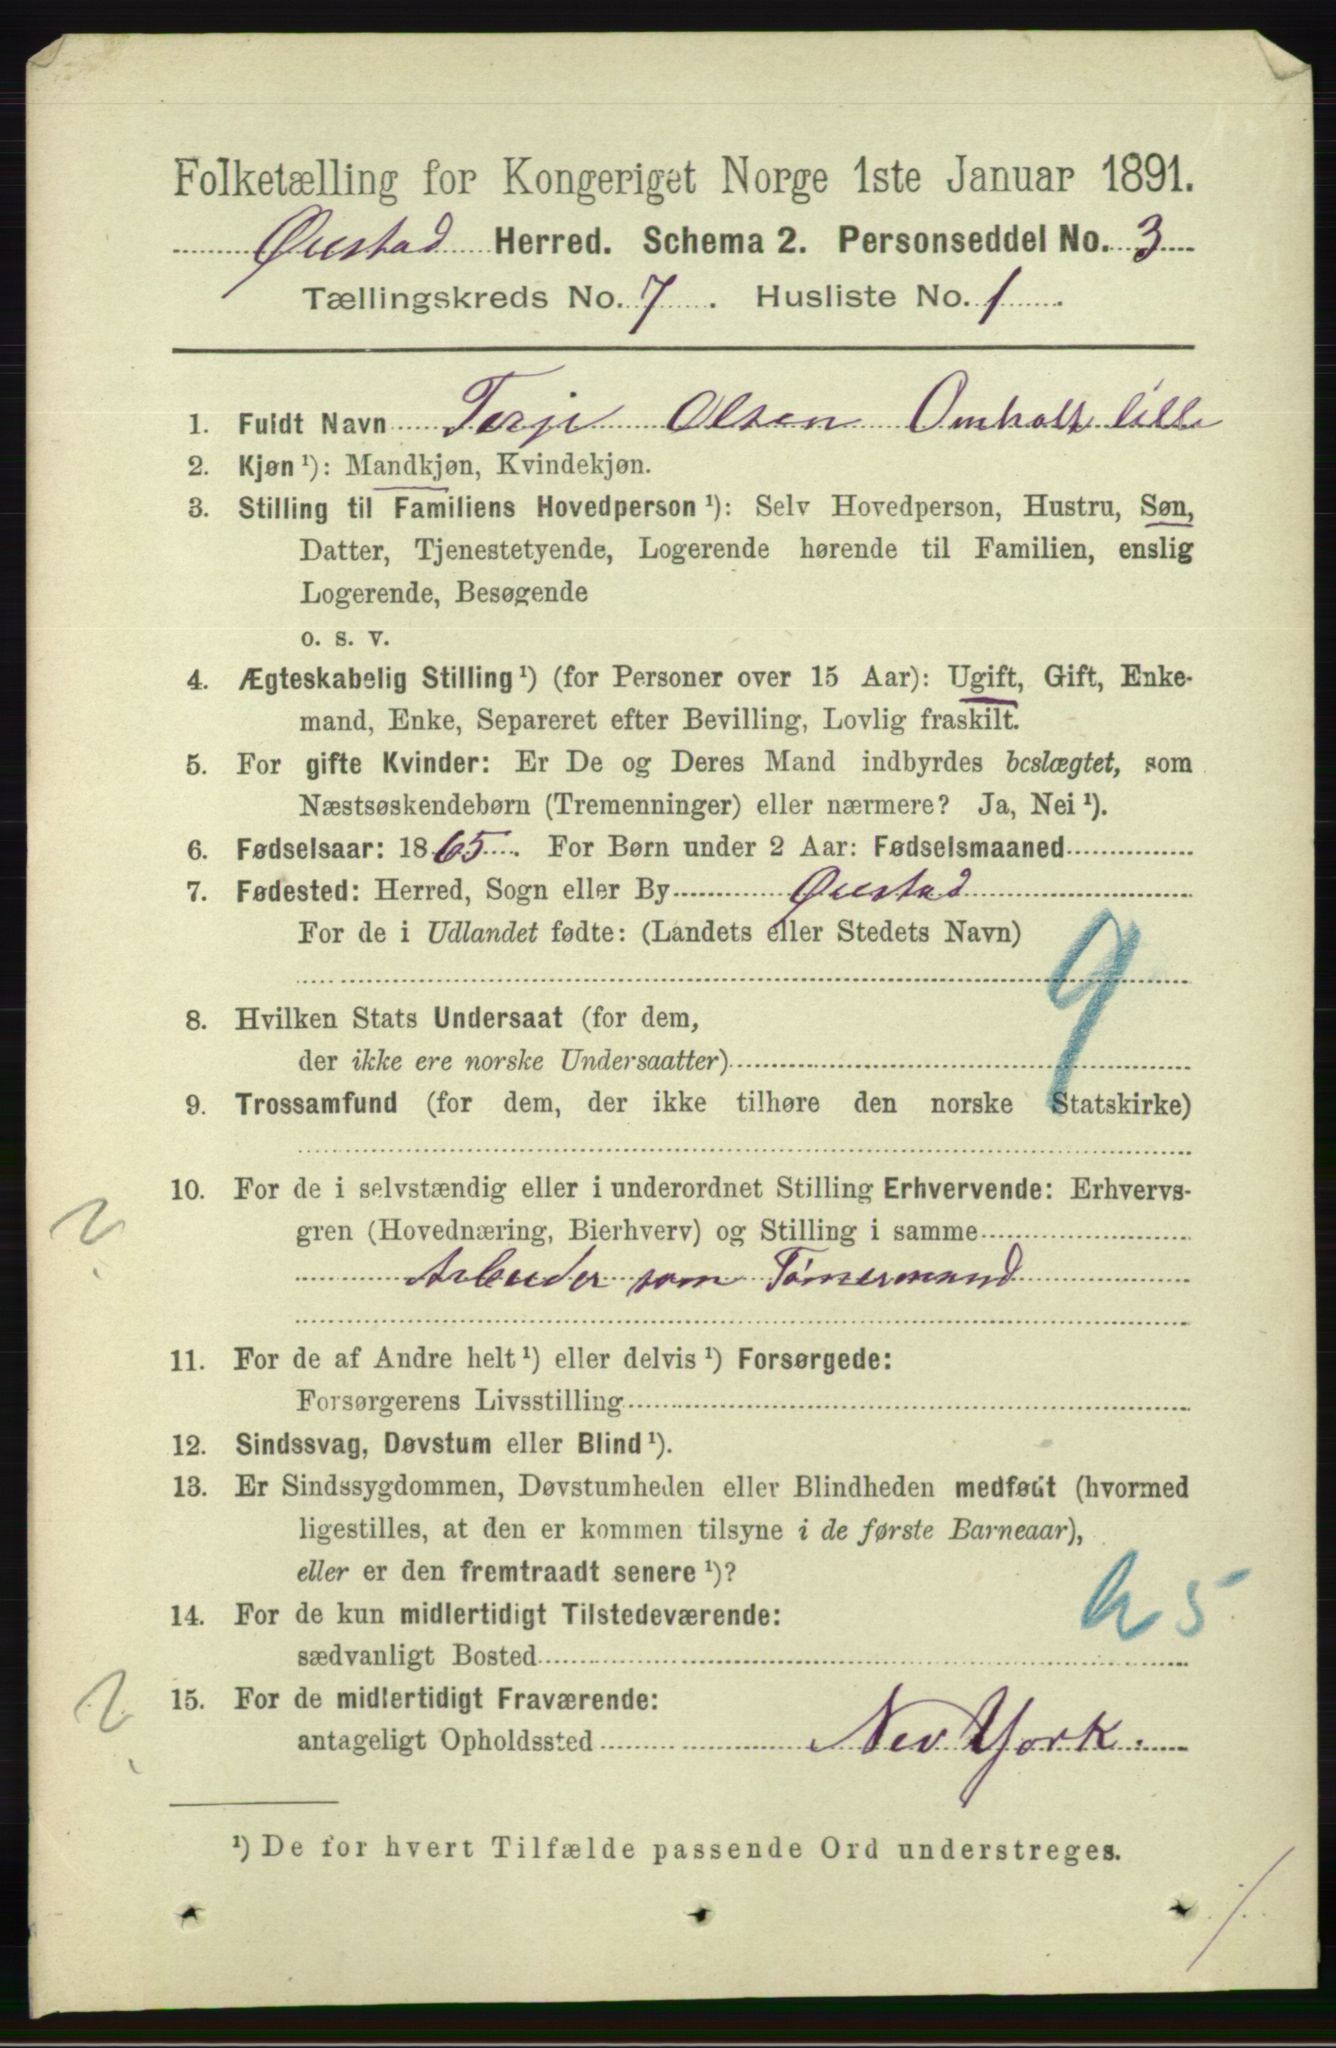 Folketælling for Kongeriget Norge 1ste Januar 1891.
Øiestad Herred. Schema 2. Personseddel No. 3
Tællingskreds No. 7. Husliste No. 1.
1. Fuldt Navn Terje Olsen Omholt lille
2. Kjøn ¹): Mandkjøn, Kvindekjøn.
3. Stilling til Familiens Hovedperson ¹): Selv Hovedperson, Hustru, Søn,
Datter, Tjenestetyende, Logerende hørende til Familien, enslig
Logerende, Besøgende
o. s. v.
4. Ægteskabelig Stilling ¹) (for Personer over 15 Aar): Ugift, Gift, Enke-
mand, Enke, Separeret efter Bevilling, Lovlig fraskilt.
5. For gifte Kvinder: Er De og Deres Mand indbyrdes beslægtet, som
Næstsøskendebørn (Tremenninger) eller nærmere? Ja, Nei ¹).
6. Fødselsaar: 1865. For Børn under 2 Aar: Fødselsmaaned
7. Fødested: Herred, Sogn eller By Øiestad
For de i Udlandet fødte: (Landets eller Stedets Navn)
9
8. Hvilken Stats Undersaat (for dem,
der ikke ere norske Undersaatter)
9. Trossamfund (for dem, der ikke tilhøre den norske Statskirke)
10. For de i selvstændig eller i underordnet Stilling Erhvervende: Erhvervs-
gren (Hovednæring, Bierhverv) og Stilling i samme
Arbeider som Tømermand
11. For de af Andre helt ¹) eller delvis ¹) Forsørgede:
Forsørgerens Livsstilling
12. Sindssvag, Døvstum eller Blind ¹).
13. Er Sindssygdommen, Døvstumheden eller Blindheden medfødt (hvormed
ligestilles, at den er kommen tilsyne i de første Barneaar),
eller er den fremtraadt senere ¹)?
14. For de kun midlertidigt Tilstedeværende:
sædvanligt Bosted
15. For de midlertidigt Fraværende:
antageligt Opholdssted Nev York.
¹) De for hvert Tilfælde passende Ord understreges.